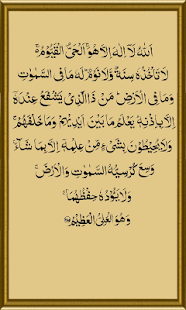 اَللّٰهُ لَاۤ اِلٰهَ اِلَّا هُوَ ۚ اَلْحَیُّ الْقَیُّوْمُ ۚ۬
لَا تَاْخُذُهٗ سِنَةٌ وَّلَا نَوْمٌ ؕ لَهٗ مَا فِی السَّمٰوٰتِ
وَمَا فِی الْاَرْضِ ؕ مَنْ ذَا الَّذِیْ یَشْفَعُ عِنْدَهٗۤ
اِلَّا بِاِذْنِهٖ ؕ یَعْلَمُ مَا بَیْنَ اَیْدِیْهِمْ وَمَا خَلْفَهُمْ ۚ
وَلَا یُحِیْطُوْنَ بِشَیْءٍ مِّنْ عِلْمِهٖۤ اِلَّا بِمَا شَآءَ ۚ
وَسِعَ كُرْسِیُّهُ السَّمٰوٰتِ وَالْاَرْضَ ۚ
وَلَا یَـُٔوْدُهٗ حِفْظُهُمَا ۚ
وَهُوَ الْعَلِیُّ الْعَظِیْمُ